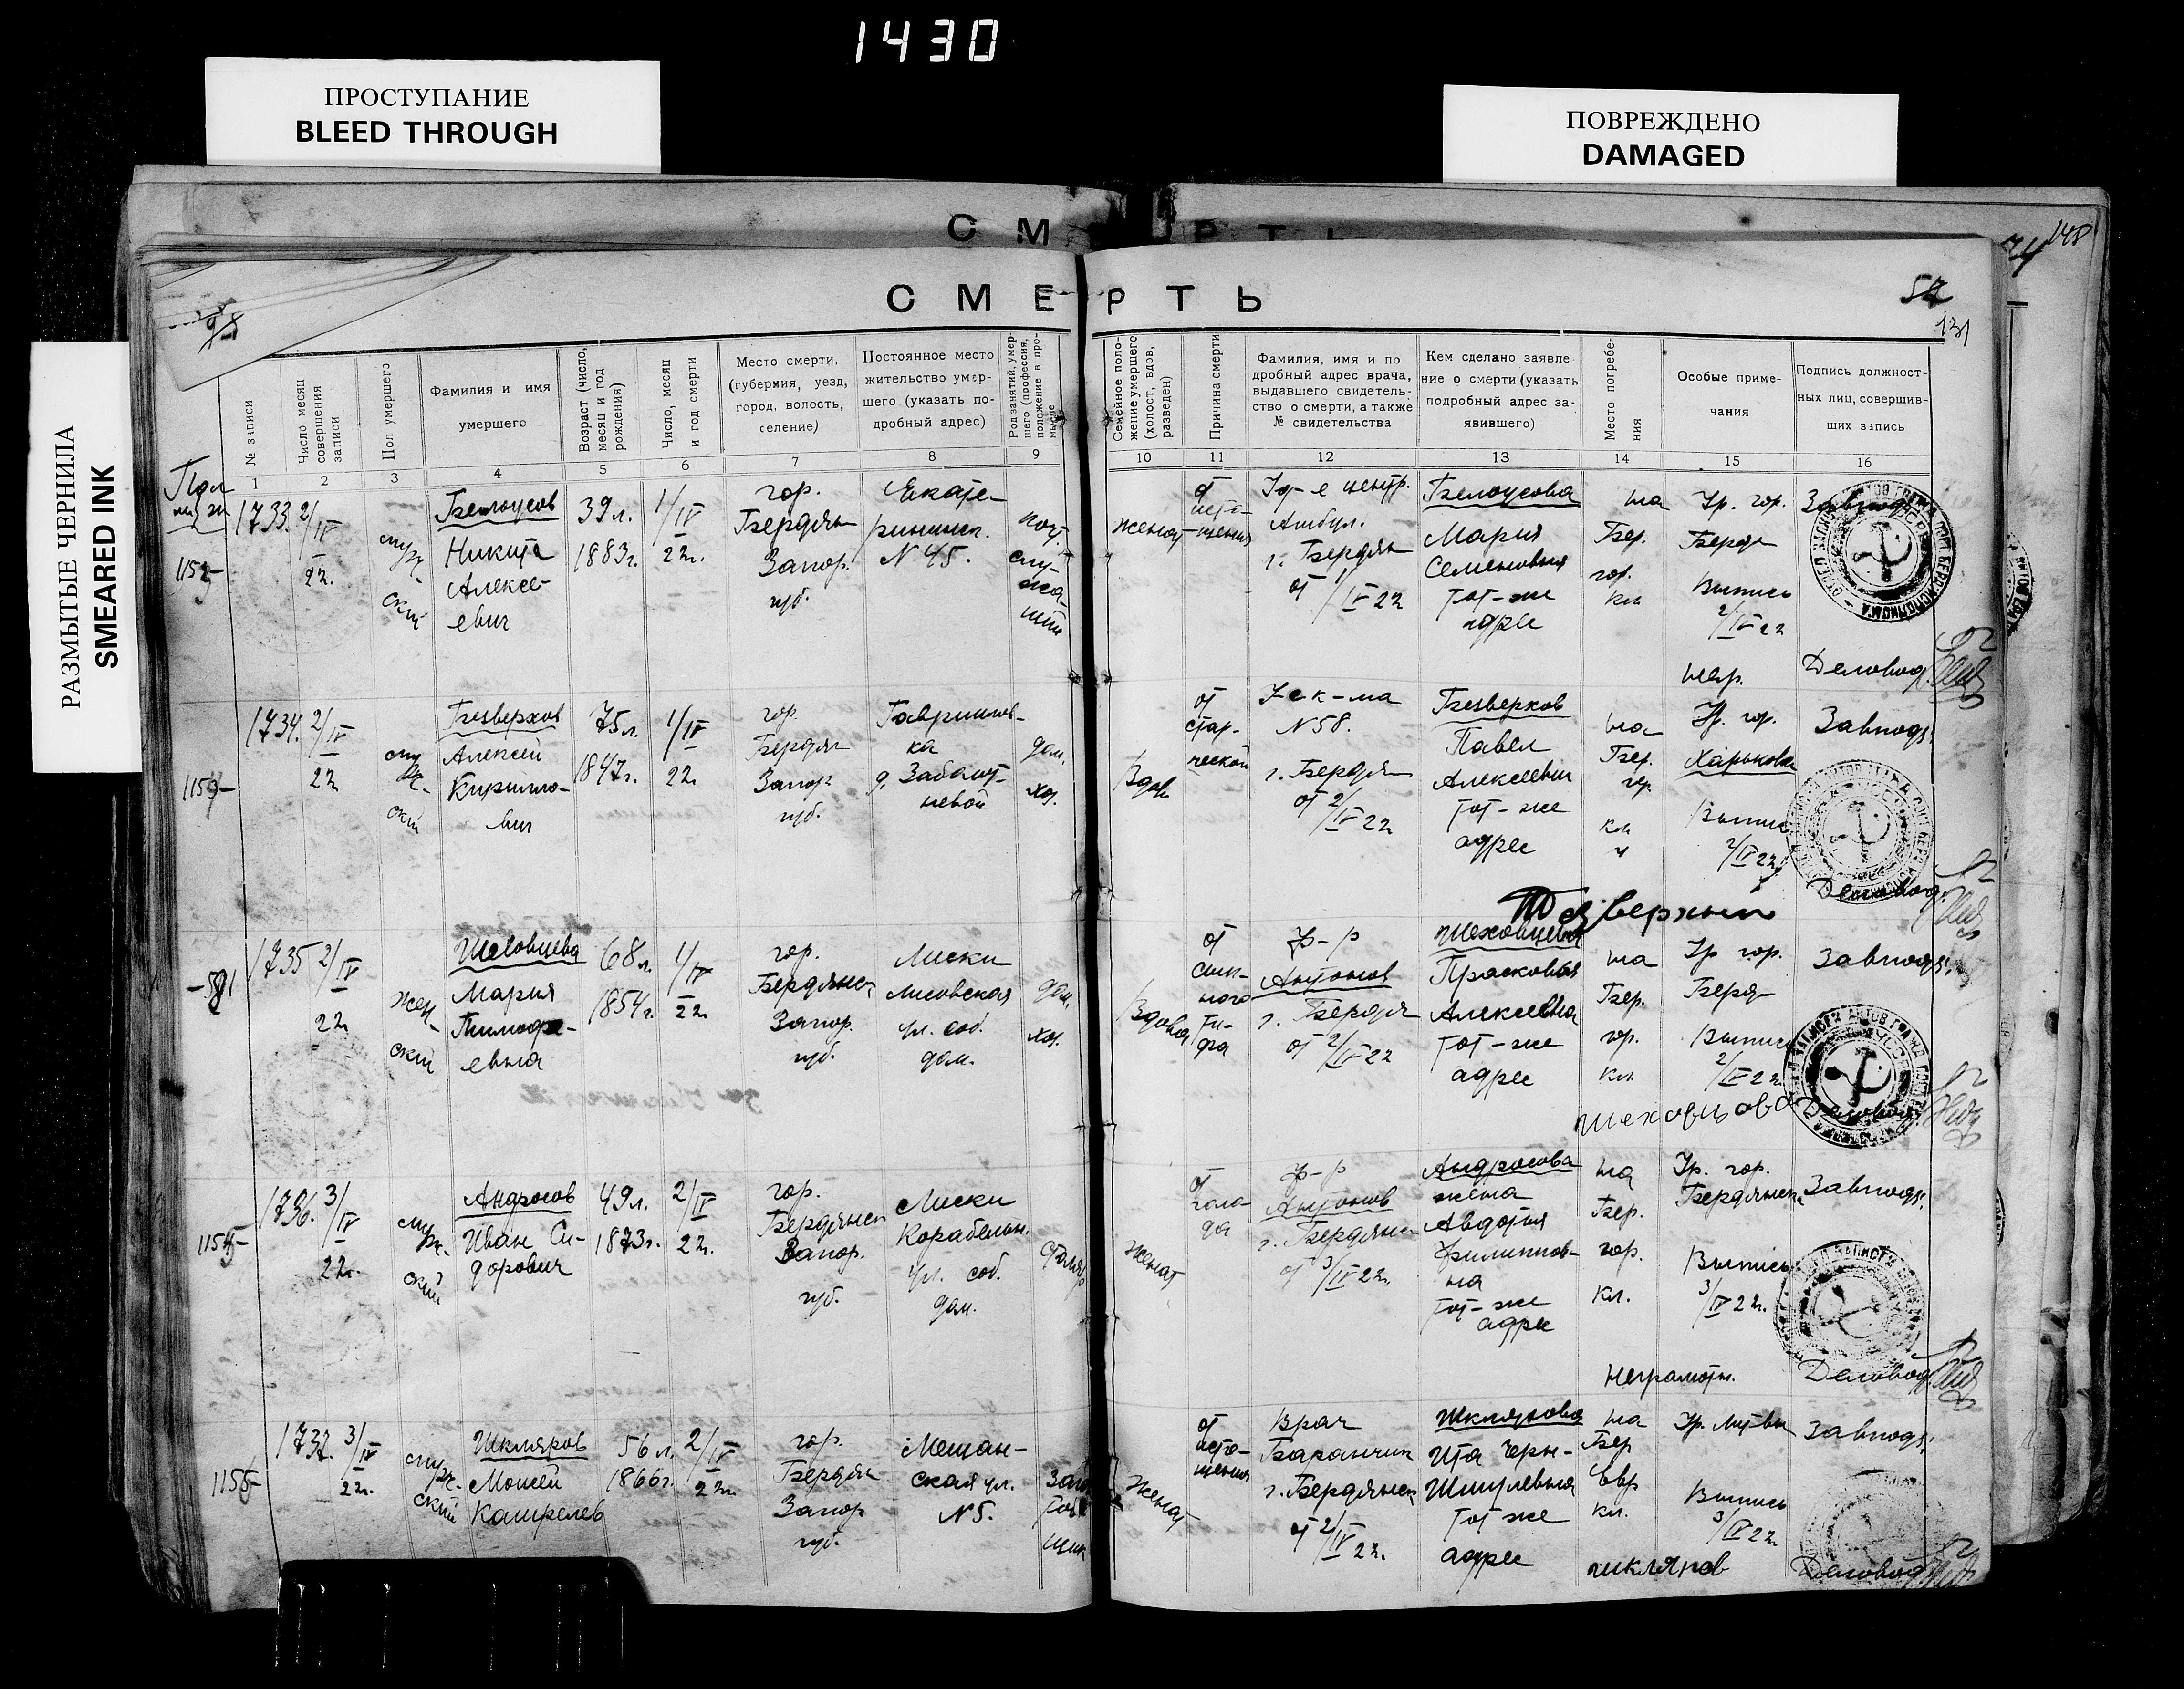 1430
ПРОСТУПАНИЕ
BLEED THROUGH
ПОВРЕЖДЕНО
DAMAGED
РАЗМЫТЫЕ ЧЕРНИЛА
SMEARED INK
148
СМЕРТЬ
52
131
№ записи
Число месяц совершения записи
Пол умершего
Фамилия и имя умершего
Возраст (число, месяц и год рождения)
Число, месяц и год смерти
Место смерти, (губерния, уезд, город, волость, селение)
Постоянное место жительство умершего (указать подробный адрес)
Род занятий, умершего (профессия, положение в промысле
Семейное положение умершего (холост, вдов, разведен)
Причина смерти
Фамилия, имя и подробный адрес врача, выдавшего свидетельство о смерти, а также № свидетельства
Кем сделано заявление о смерти (указать подробный адрес заявившего)
Место погребения
Особые примечания
Подпись должностных лиц, совершивших запись
1 2 3 4 5 6 7 8 9 10 11 12 13 14 15 16
1733. 2/IV 22.
мужской
Белоусов
Никита
Алексе-
евич
39 л.
1883 г.
1/IV
22 г.
гор.
Бердян
Запор.
губ.
Екате-
рининск.
N 45.
женат
от
исто-
щения
Амбул.
г. Бердян
от 1/IV 22
Белоусова
Мария
Семеновна
тот-же
адрес
на
Бер.
гор.
кл
Гр. гор.
Бердя
Выпись
2/IV 22
негр.
Завподз.
Деловод
1734. 2/IV
22
мужской
Безверхов
Алексей
Кирилло-
вич
75 л.
1847 г.
1/IV
22
гор.
Бердян
Запор
губ.
Гавриилов-
ка
д. Забашт-
невой
дом.
хоз.
Вдов
от
стар-
ческой
N 58.
г. Бердян
от 2/IV 22
Безверхов
Павел
Алексеевич
тот-же
адрес
на
Бер.
гр.
кл
Гр. гор.
Харькова
Выпис
2/IV 22
Завподз.
Деловод.
Безверхий
1735 2/IV
22
женский
Шеховцева
Мария
Тимофе-
евна
68 л.
1854 г.
1/IV
22
гор.
Бердянск
Запор.
губ.
Лиски
Лисовская
ул. соб.
дом.
дом.
хоз.
Вдова
от
сып-
ного
ти-
фа
Антонов
г. Бердян
от 2/IV 22
Шеховцева
Прасковья
Алексеевна
тот-же
адрес
на
Бер.
гор.
кл.
Гр гор.
Бердя
Выпись
2/IV 22
Завподз.
Шеховцова
Деловод
1736. 3/IV
22 г.
мужской
Андросов
Иван Си-
дорович
49 л.
1873 г.
2/IV
22 г.
гор.
Бердянск
Запор.
губ.
Лиски
Корабельн.
ул. соб.
дом.
Женат
от
голо-
да
Антонов
г. Бердянск
от 3/IV 22 г.
Андросова
жена
Авдотья
Филиппов-
на
тот-же
адрес
на
Бер.
гор.
кл.
Гр. гор.
Бердянск
Выпись
3/IV 22 г.
Завподз.
неграмотн.
Деловод
1737. 3/IV
22 г.
мужской
Шкляров
Мошей
Кашрелев
56 л.
1866 г.
2/IV
22 г.
гор.
Бердян
Запор
губ.
Мещан-
ская ул.
N 5.
Женат
от
исто-
щения
Врач
Баранчик
г. Бердянск
от 2/IV 22.
Шклярова
Ита Черн-
Шмулевна
тот же
адрес
на
Бер
Евр
кл.
Гр. Литвы
Выпись
3/IV 22 г.
Завподз.
шкляров
Деловод